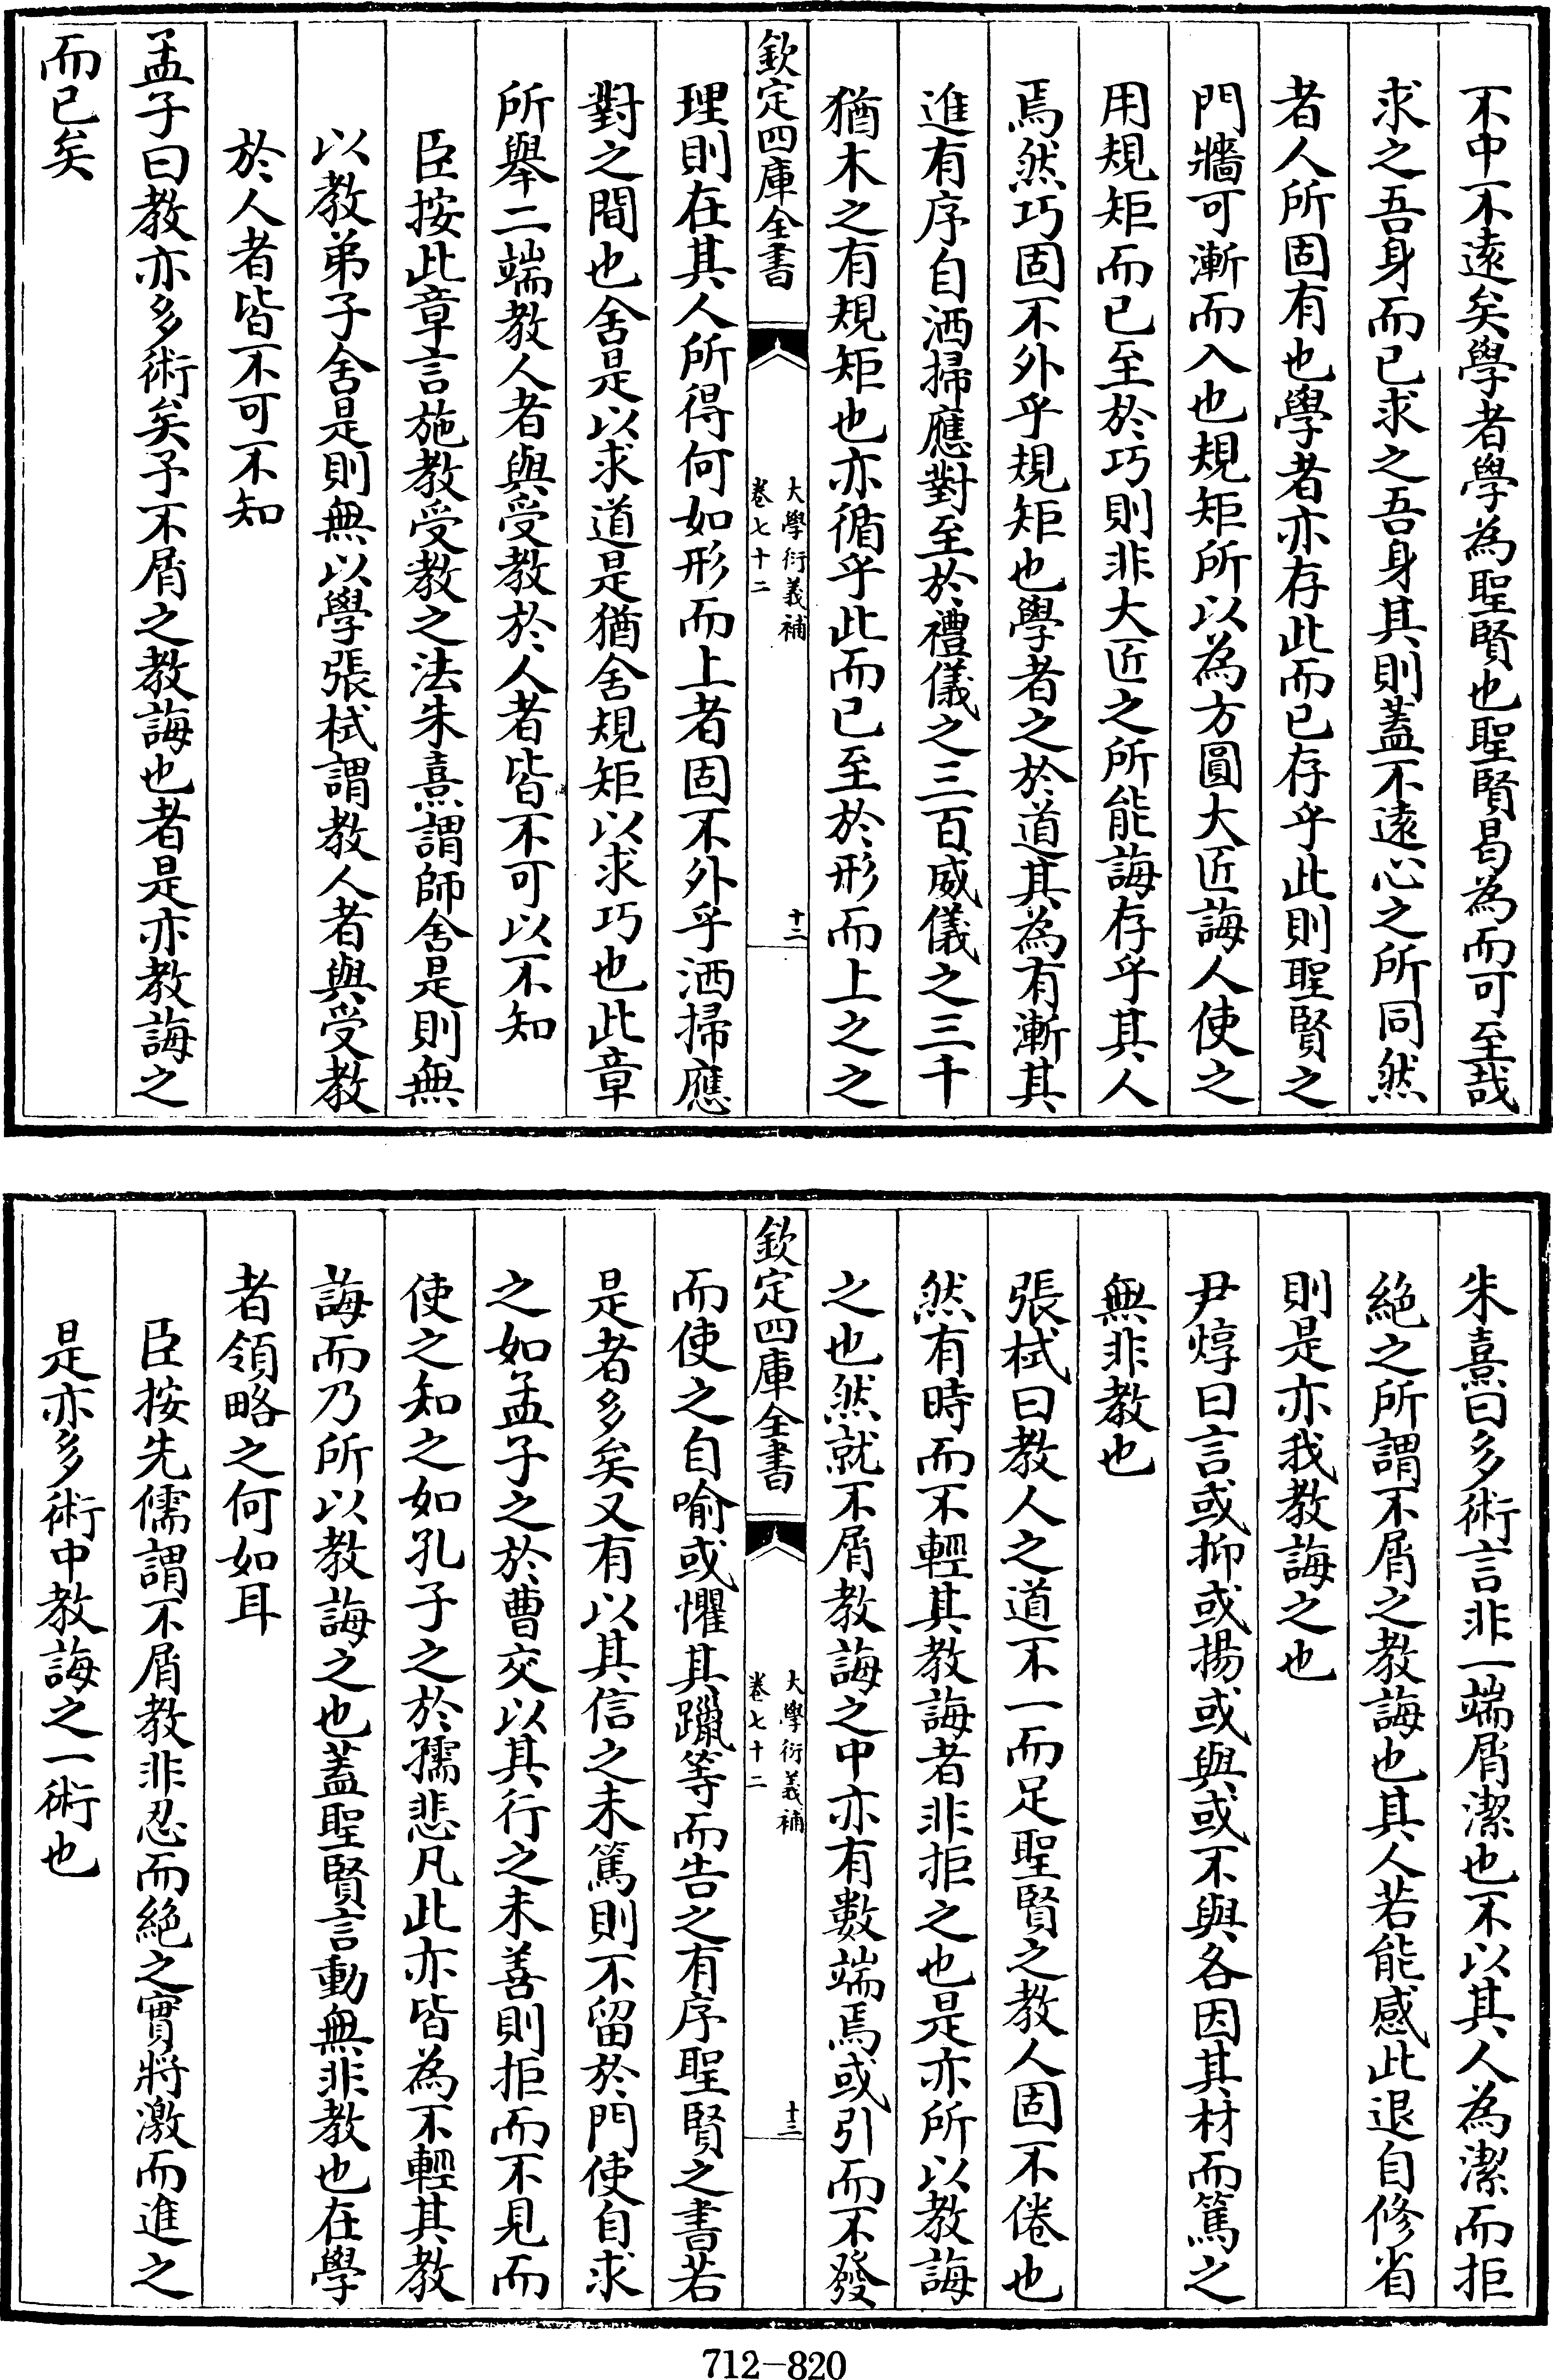 不中不遠矣學者學為聖賢也聖賢曷為而可至哉
求之吾身而已求之吾身其則蓋不遠心之所同然
者人所固有也學者亦存此而已存乎此則聖賢之
門牆可漸而入也規矩所以為方圓大匠誨人使之
用規矩而已至於巧則非大匠之所能誨存乎其人
焉然巧固不外乎規矩也學者之於道其為有漸其
進有序自洒掃應對至於禮儀之三百威儀之三千
猶木之有規矩也亦循乎此而已至於形而上之之
欽定四庫全書
大學衍義補
卷七十二
十二
理則在其人所得何如形而上者固不外乎洒掃應
對之間也舍是以求道是猶舍規矩以求巧也此章
所舉二端教人者與受教於人者皆不可以不知
臣按此章言施教受教之法朱熹謂師舍是則無
以教弟子舍是則無以學張栻謂教人者與受教
於人者皆不可不知
孟子曰教亦多術矣予不屑之教誨也者是亦教誨之
而已矣
朱熹曰多術言非一端屑潔也不以其人為潔而拒
絕之所謂不屑之教誨也其人若能感此退自修省
則是亦我教誨之也
尹焞曰言或抑或揚或與或不與各因其材而篤之
無非教也
張栻曰教人之道不一而足聖賢之教人固不倦也
然有時而不輕其教誨者非拒之也是亦所以教誨
之也然就不屑教誨之中亦有數端焉或引而不發
欽定四庫全書
大學衍義補
卷七十二
十三
而使之自喻或懼其躐等而告之有序聖賢之書若
是者多矣又有以其信之未篤則不留於門使自求
之如孟子之於曹交以其行之未善則拒而不見而
使之知之如孔子之於孺悲凡此亦皆為不輕其教
誨而乃所以教誨之也蓋聖賢言動無非教也在學
者領略之何如耳
臣按先儒謂不屑教非忍而絕之實將激而進之
是亦多術中教誨之一術也
712-820